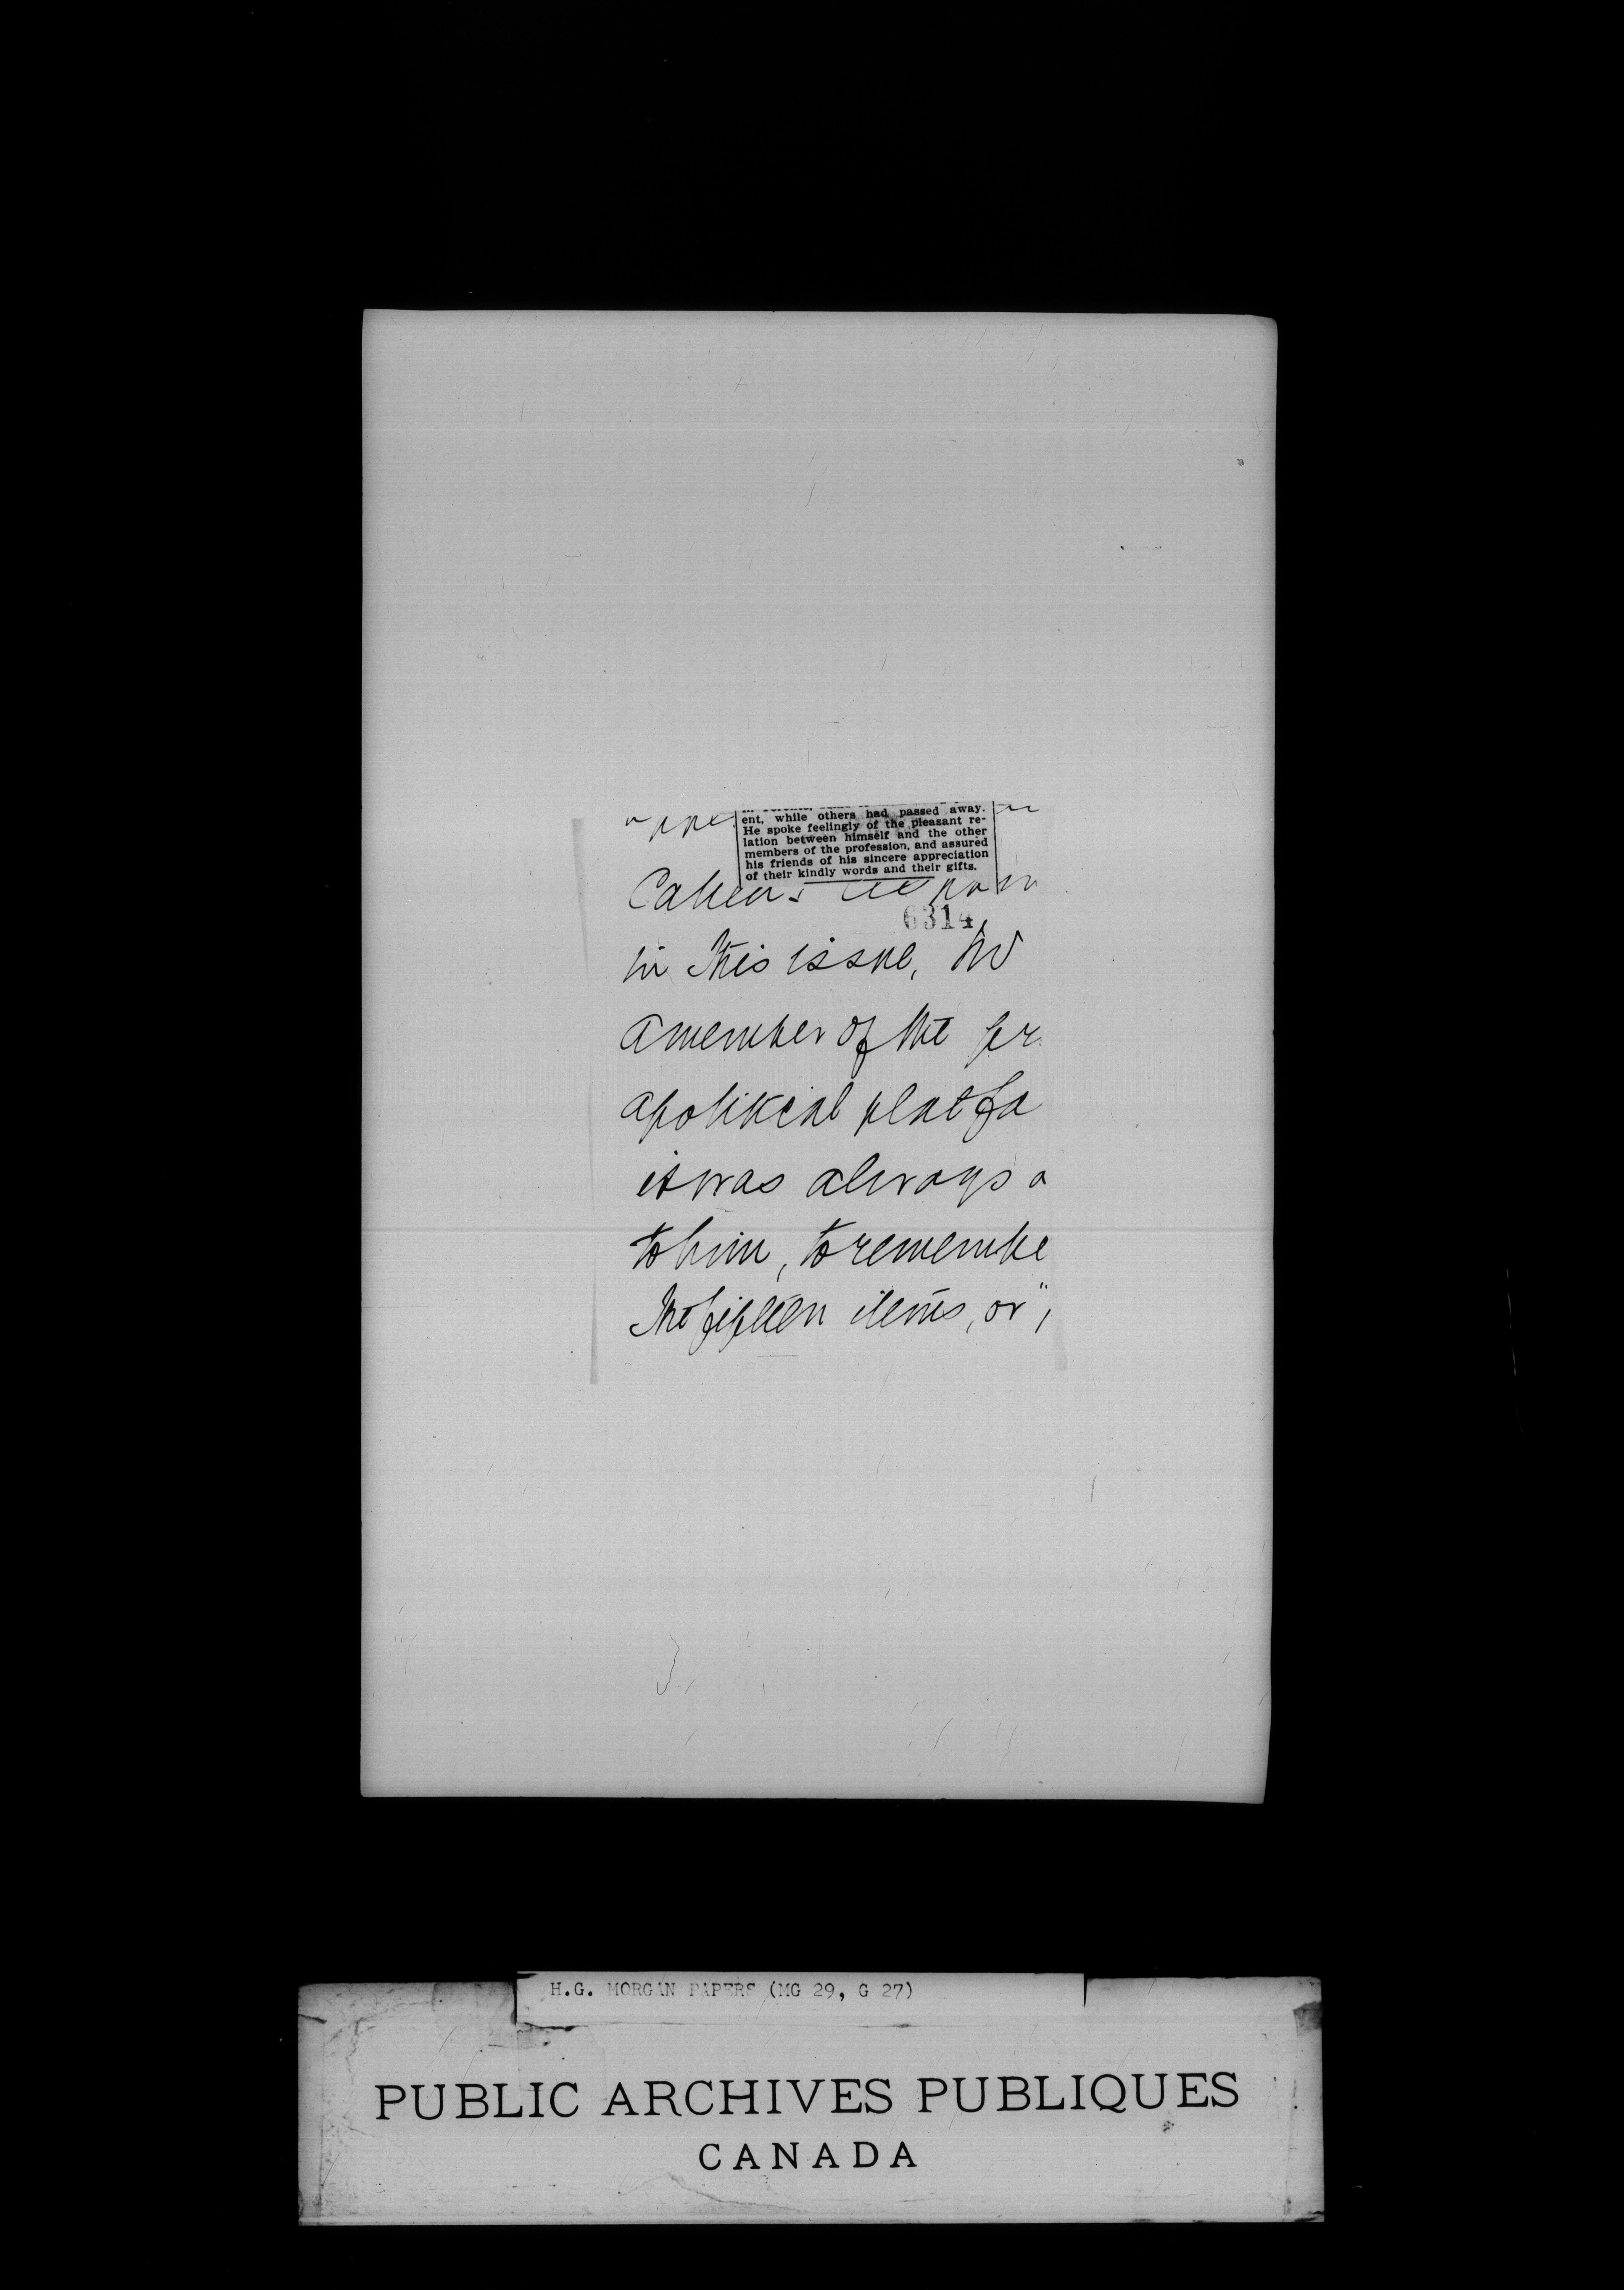 ent, while others had passed away.
He spoke feelingly of the pleasant re-
lation between himself and the other
members of the profession, and assured
his friends of his sincere appreciation
of their kindly words and their gifts.
6314
in this issue,
a member of the pr
a political platfo
it was always a
to him, to remembe
The fifteen items, or "
H.G. MORGAN PAPERS (MG 29, G 27)
PUBLIC ARCHIVES PUBLIQUES
CANADA